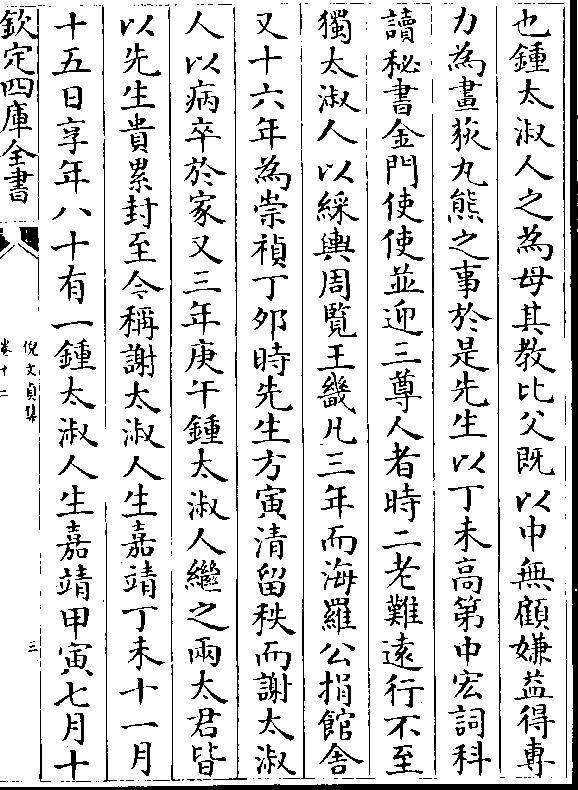 也鍾太淑人之為母其教比父既以中無顧嫌益得專
力為畫荻丸熊之事於是先生以丁未高第中宏詞科
讀秘書金門使使並迎三尊人者時二老難遠行不至
獨太淑人以綵輿周覧王畿凡三年而海羅公捐館舎
又十六年為崇禎丁夘時先生方寅清留秩而謝太淑
人以病卒於家又三年庚午鍾太淑人繼之兩太君皆
以先生貴累封至令稱謝太淑人生嘉靖丁未十一月
十五日享年八十有一鍾太淑人生嘉靖甲寅七月十
欽定四庫全書
倪文貞集
卷十二
三